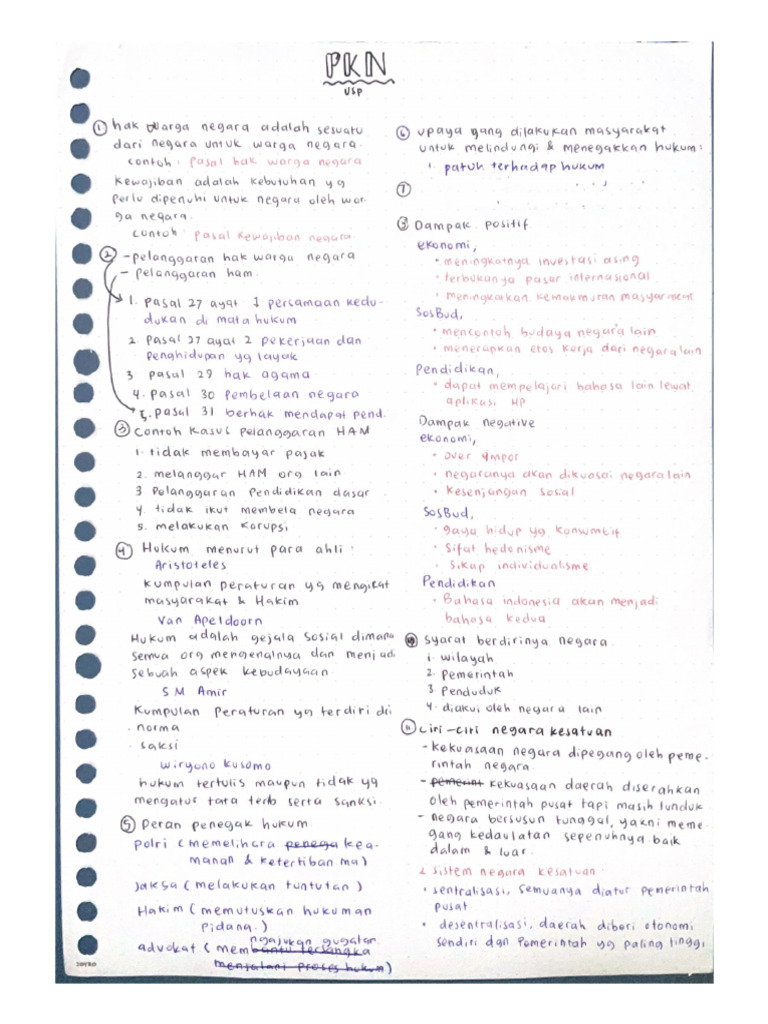 PKN
USP
① hak warga negara adalah sesuatu
dari negara untuk warga negara.
contoh: pasal hak warga negara
Kewajiban adalah kebutuhan yg
perlu dipenuhi untuk negara oleh war-
ga negara.
contoh: pasal kewajiban negara
② - pelanggaran hak warga negara
- pelanggaran ham.
1. pasal 27 ayat 1 persamaan kedu-
dukan di mata hukum
2. pasal 27 ayat 2 pekerjaan dan
penghidupan yg layak
3 pasal 29 hak agama
4. pasal 30 pembelaan negara
5. pasal 31 berhak mendapat pend.
③ Contoh kasus pelanggaran HAM
1. tidak membayar pajak
2. melanggar HAM org lain
3 Pelanggaran pendidikan dasar
4. tidak ikut membela negara
5. melakukan korupsi
④ Hukum menurut para ahli:
Aristoteles
kumpulan peraturan yg mengikat
masyarakat & Hakim
Van Apeldoorn
Hukum adalah gejala sosial dimana
semua org mengenalnya dan menjadi
sebuah aspek kebudayaan
S M Amir
Kumpulan Peraturan yg terdiri dri
. norma
. saksi
wiryono kusomo
hukum tertulis maupun tidak yg
mengatur tata terb serta sanksi.
⑤ Peran penegak hukum
polri (memelihara penega kea-
manan & ketertiban ma)
jaksa (melakukan tuntutan)
Hakim (memutuskan hukuman
pidana.)
ngajukan gugatan
advokat (membantu tersangka
menjalani proses hukum)
⑥ upaya yang dilakukan masyarakat
untuk melindungi & menegakkan hukum:
1. patuh terhadap hukum
⑦
⑧ Dampak positif
ekonomi,
• meningkatnya investasi asing
• terbukanya pasar internasional
• meningkatkan kemakmuran masyarakat
SosBud,
• mencontoh budaya negara lain
• menerapkan etos kerja dari negara lain
Pendidikan,
• dapat mempelajari bahasa lain lewat
aplikasi HP
Dampak negative
ekonomi,
• over impor
• negaranya akan dikuasai negara lain
• Kesenjangan sosial
SosBud,
• gaya hidup yg konsumtif
• Sifat hedonisme
• Sikap individualisme
Pendidikan
• Bahasa indonesia akan menjadi
bahasa kedua
⑩ Syarat berdirinya negara
1 wilayah
2. Pemerintah
3 Penduduk
4. diakui oleh negara lain
⑪ Ciri-ciri negara kesatuan
- kekuasaan negara dipegang oleh peme-
rintah negara.
- pemerint kekuasaan daerah diserahkan
oleh pemerintah pusat tapi masih tunduk
- negara bersusun tunggal, yakni meme-
gang kedaulatan sepenuhnya baik
dalam & luar.
2 sistem negara kesatuan:
• sentralisasi, semuanya diatur pemerintah
pusat.
• desentralisasi, daerah diberi otonomi
sendiri dan Pemerintah yg paling tinggi